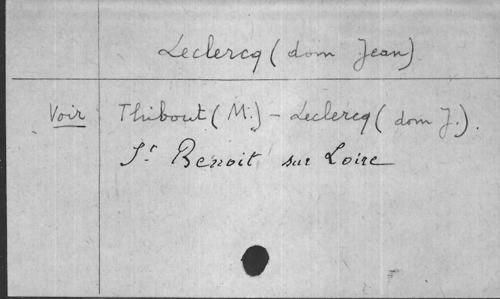 Leclercq (dom Jean)
Voir Thibout (M.) - Leclercq (dom J.).
St Benoit sur Loire